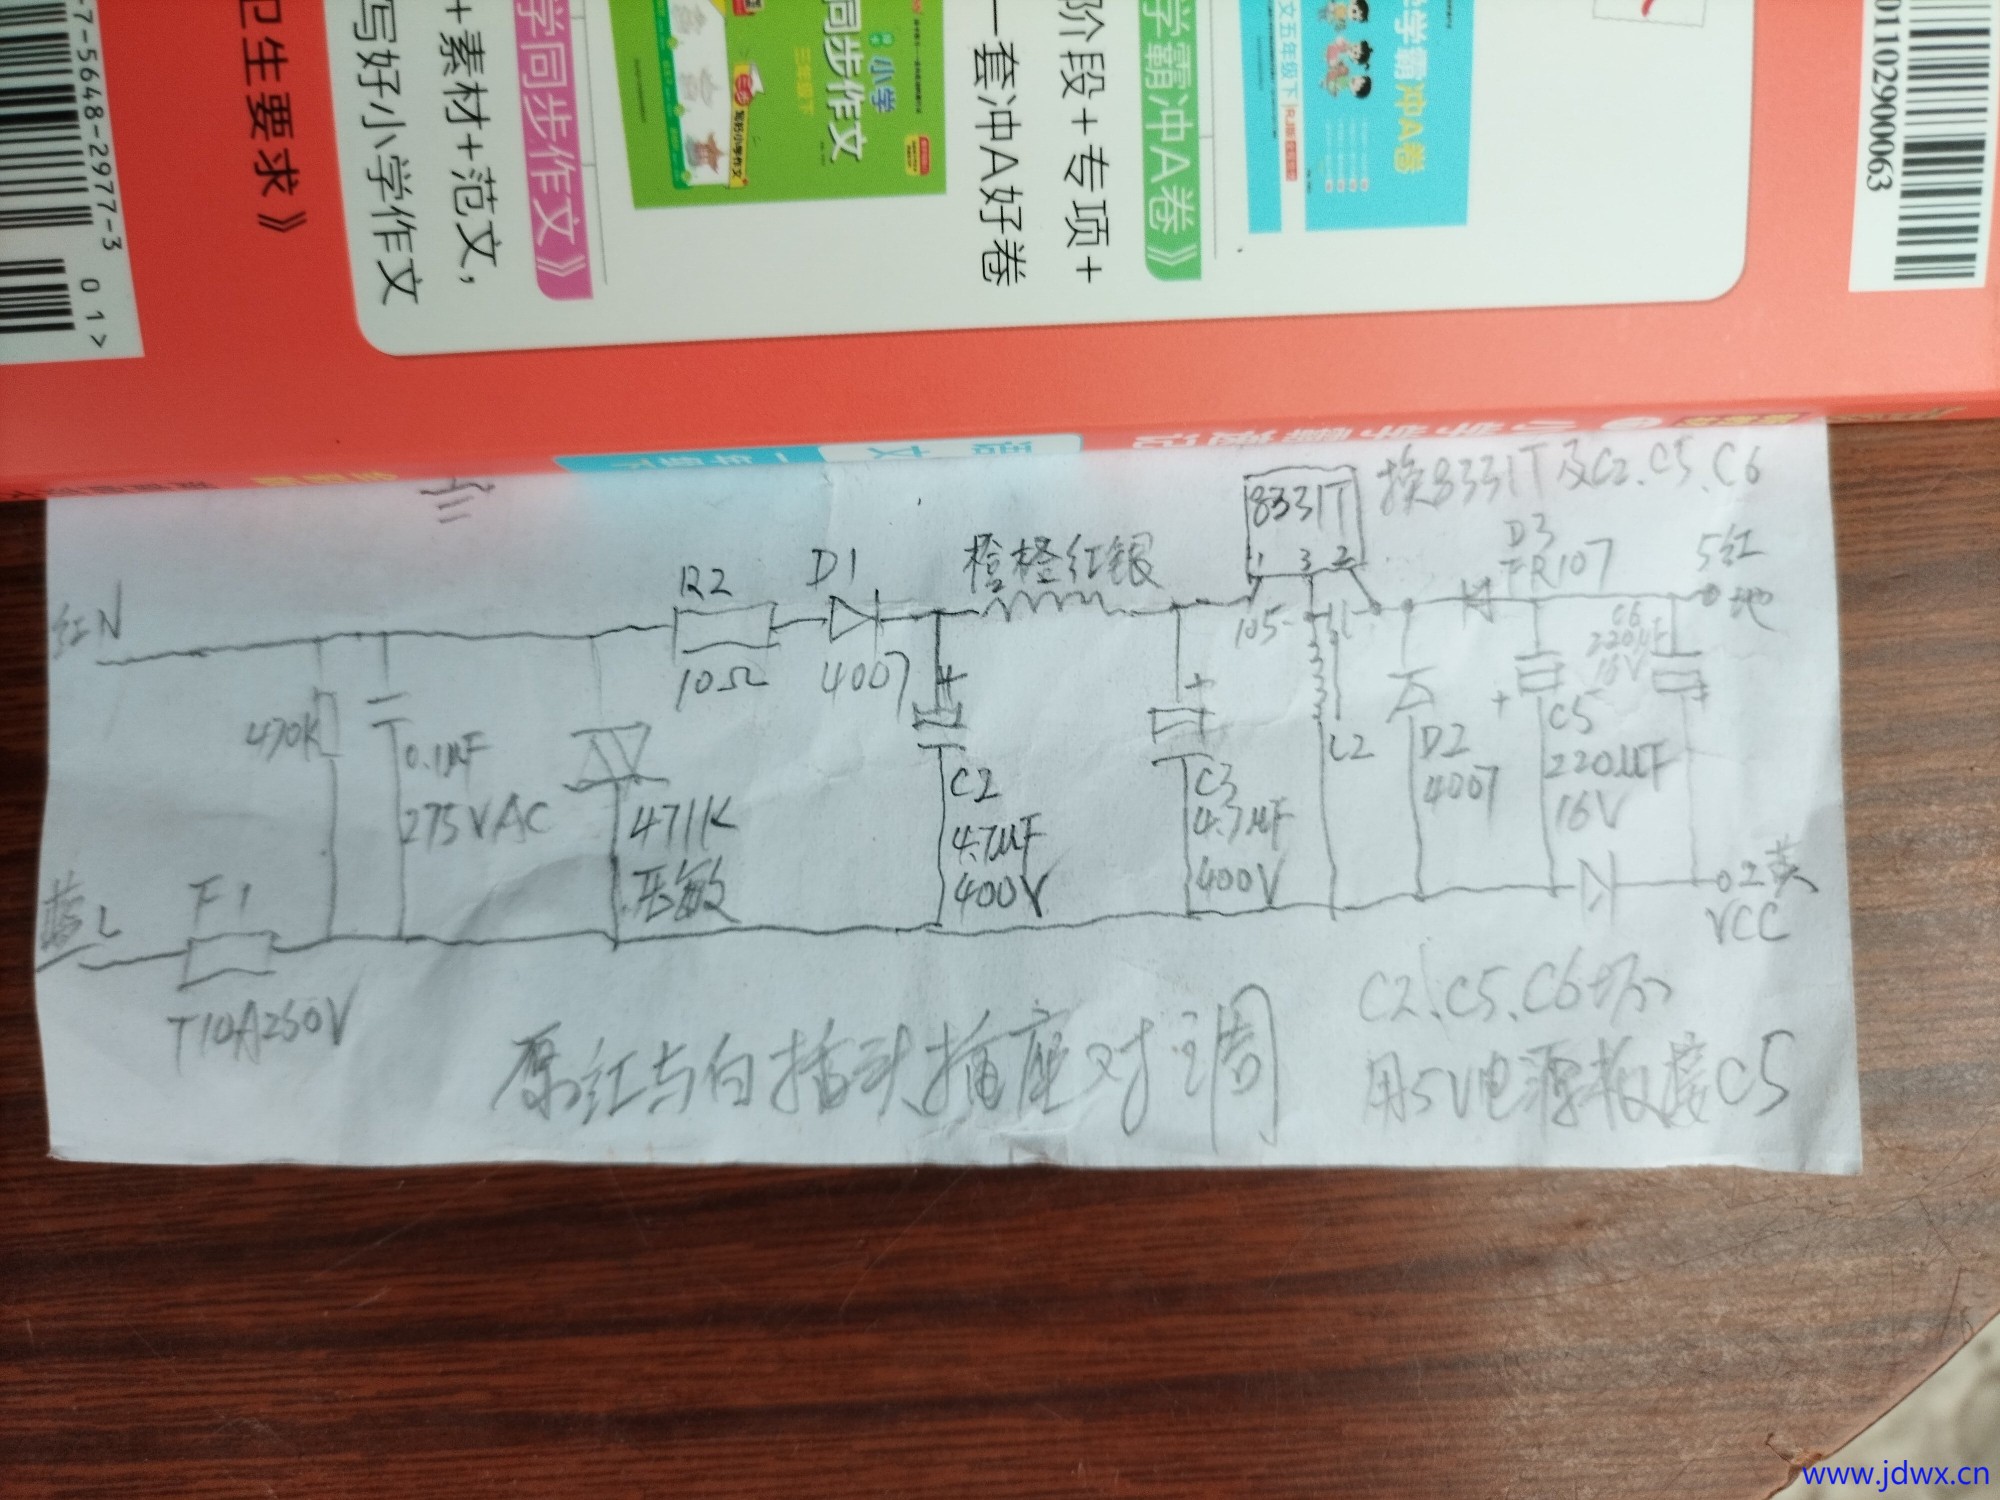 7-5648-2977-3
01>
卫生要求》
写好小学作文
+素材+范文，
学同步作文》
同步作文
小学
三年级下
一套冲A好卷
阶段+专项+
学霸冲A卷》
学霸冲A卷
文五年级下
RJ版
01102900063
语文
一年级下
换8331T及C2、C5、C6
8331T
1 3 2
橙橙红银
D1
4007
R2
10Ω
红N
D3
FR107
5红
地
105
C6
220μF
16V
470K
0.1μF
275VAC
471K
压敏
C2
4.7μF
400V
C3
4.7μF
400V
L2
D2
4007
C5
220μF
16V
蓝L
F1
T10A250V
02黄
VCC
C2、C5、C6坏
用5V电源板接C5
原红与白插头插座对调
www.jdwx.cn